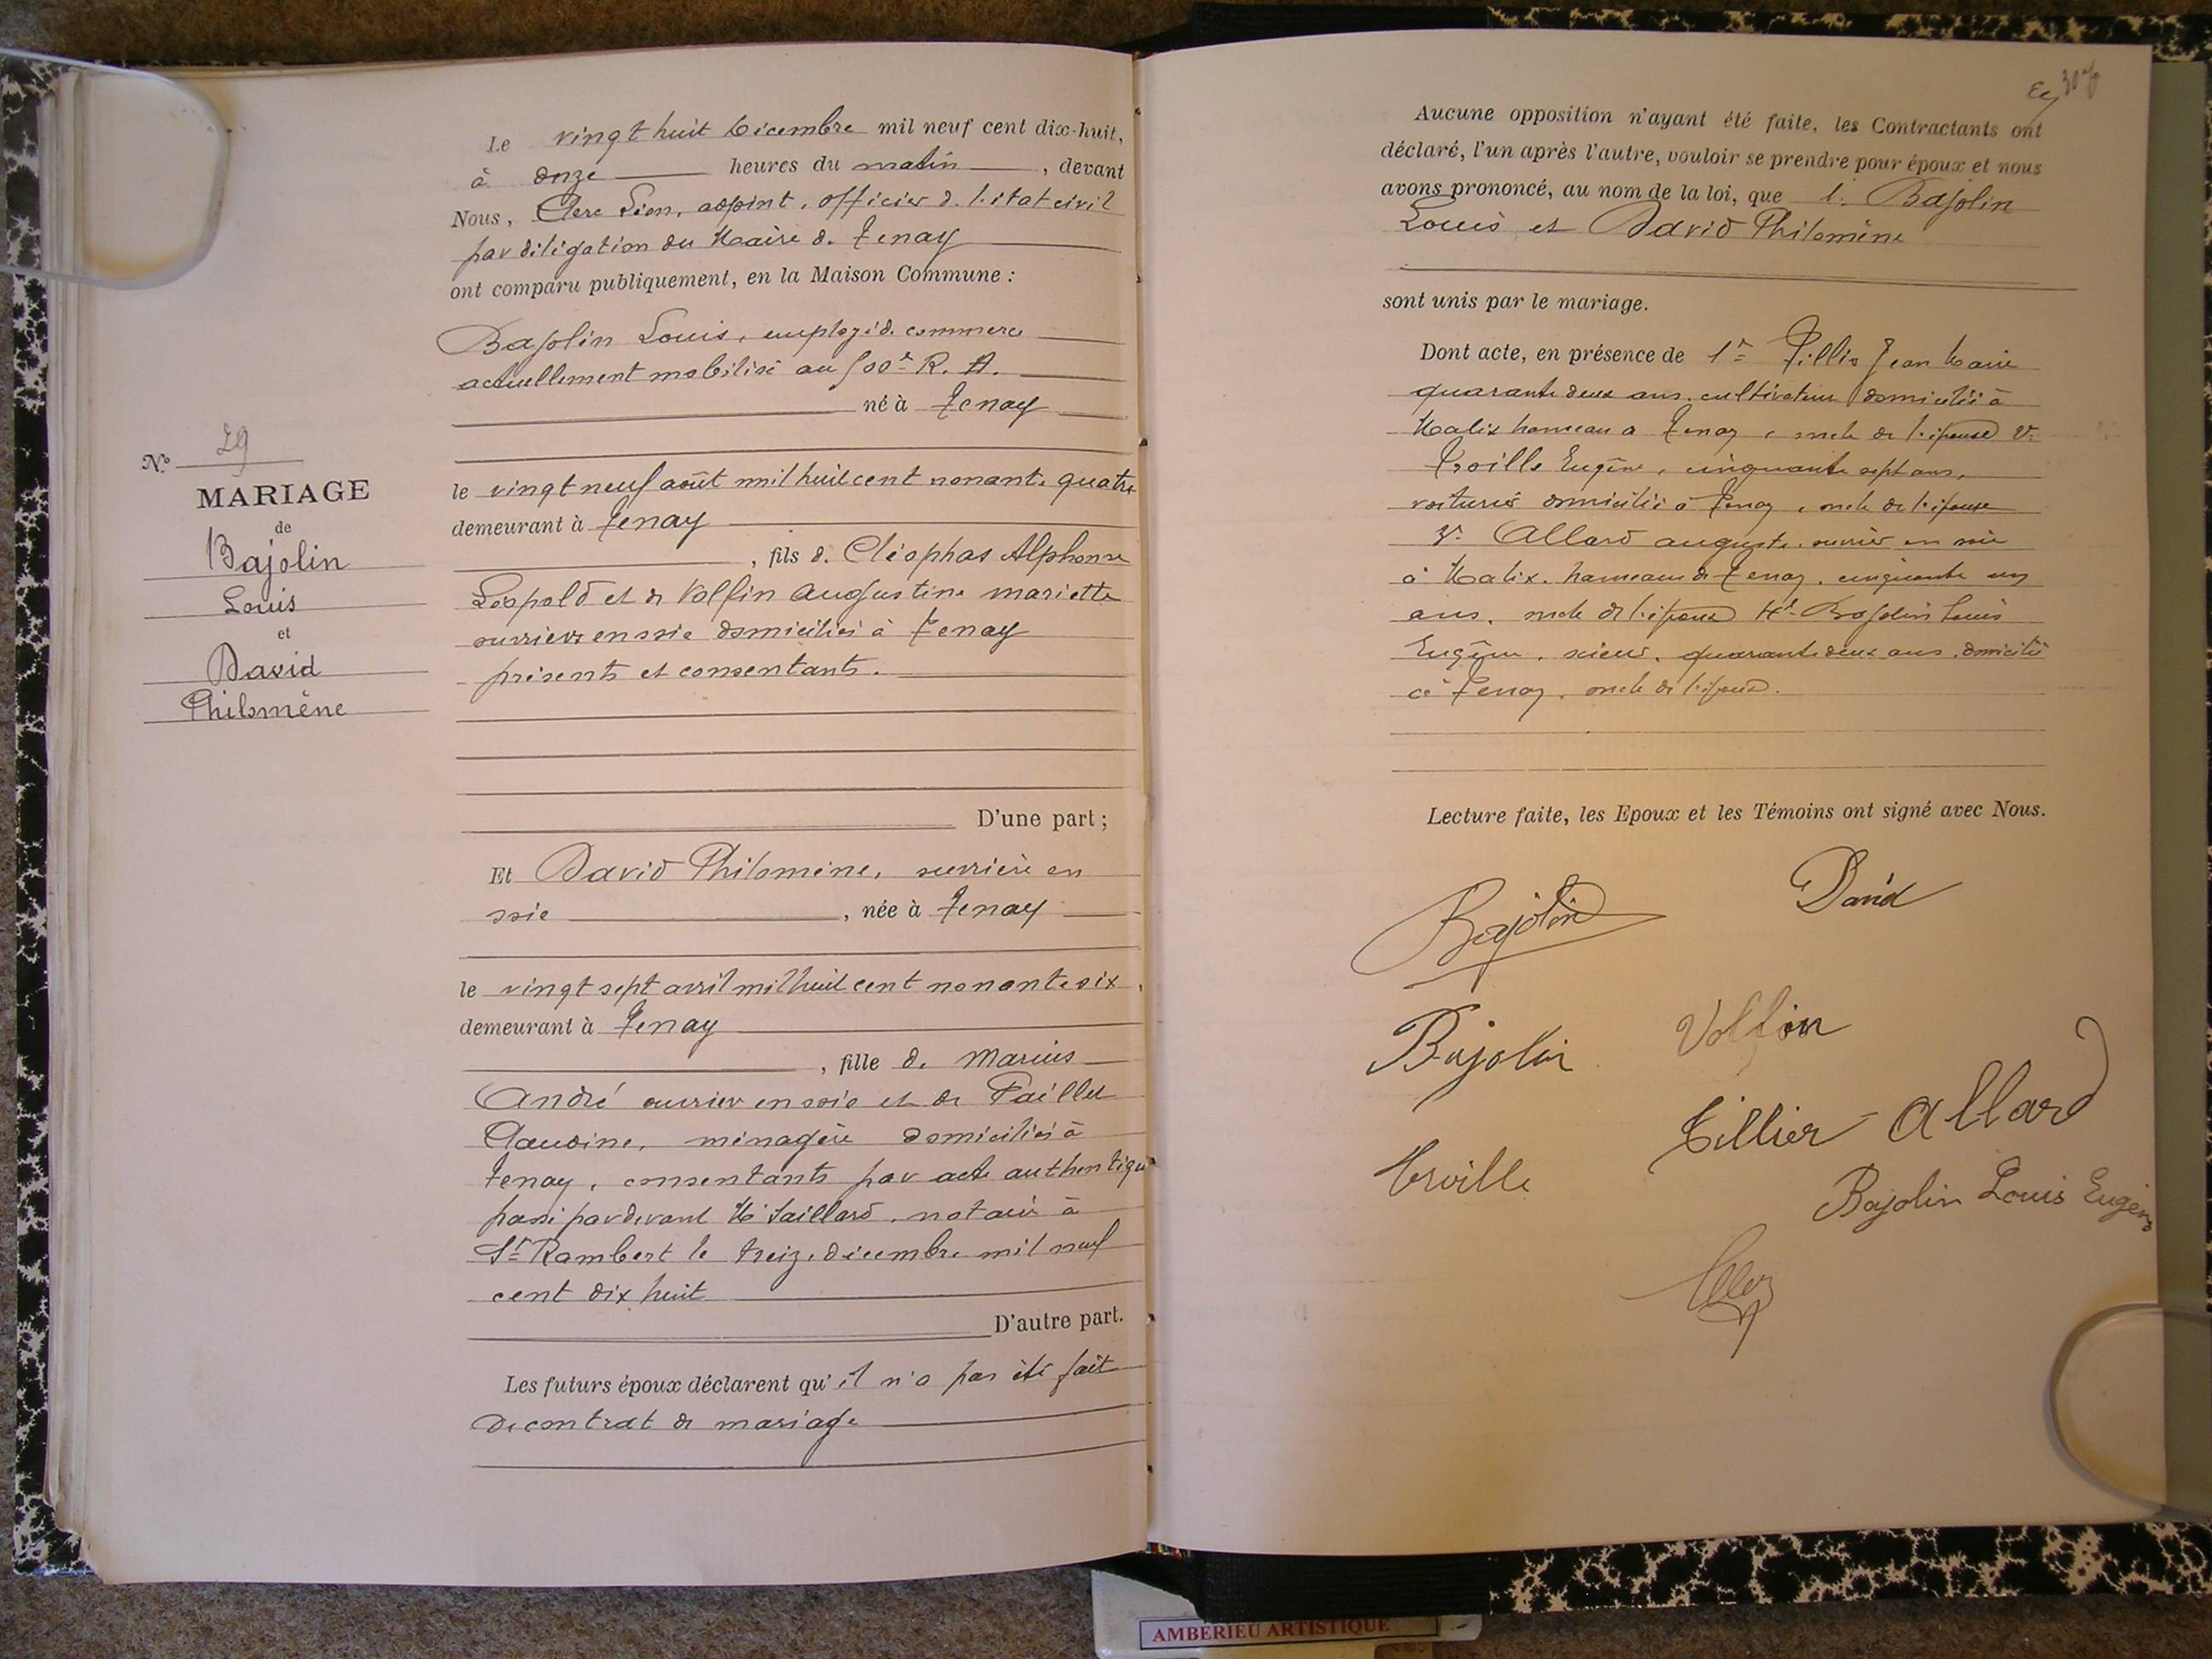 N.° 29
MARIAGE
de
Bajolin
Louis
et
David
Philomène
Le vingt huit Décembre mil neuf cent dix-huit,
à onze heures du matin, devant
Nous, Clerc Léon, adjoint, officier de l'état civil
par délégation du Maire de Tenay
ont comparu publiquement, en la Maison Commune :
Bajolin Louis, employé de commerce
actuellement mobilisé au R. A.
né à Tenay
le vingt neuf août mil huit cent nonante quatre
demeurant à Tenay
, fils de Cléophas Alphonse
Léopold et de Vollin Augustine mariette
ouvriers en soie domiciliés à Tenay
présents et consentants.
D'une part ;
Et David Philomène, ouvrière en
soie, née à Tenay
le vingt sept avril mil huit cent nonante six,
demeurant à Tenay
, fille de Marius
André ouvrier en soie et de Paillet
Claudine, ménagère domiciliés à
Tenay, consentants par acte authentique
passé pardevant Me Saillard, notaire à
St Rambert le treize décembre mil neuf
cent dix huit
D'autre part.
Les futurs époux déclarent qu'il n'a pas été fait
de contrat de mariage
Aucune opposition n'ayant été faite, les Contractants ont
déclaré, l'un après l'autre, vouloir se prendre pour époux et nous
avons prononcé, au nom de la loi, que Bajolin
Louis et David Philomène
sont unis par le mariage.
Dont acte, en présence de 1° Jean Marie
quarante deux ans, cultivateur domicilié à
Malix hameau à Tenay, oncle de l'épouse 2°
Eugène, cinquante sept ans,
voiturier domicilié à Tenay, oncle de l'épouse
3° Allard auguste, ouvrier en soie
à Malix, hameau de Tenay, cinquante un
ans, oncle de l'épouse 4° Bajolin Louis
Eugène, scieur, quarante deux ans, domicilié
à Tenay, oncle de l'époux.
Lecture faite, les Epoux et les Témoins ont signé avec Nous.
Bajolin
David
Bajolin
Vollin
Tillier
Allard
Bajolin Louis Eugène
AMBERIEU ARTISTIQUE